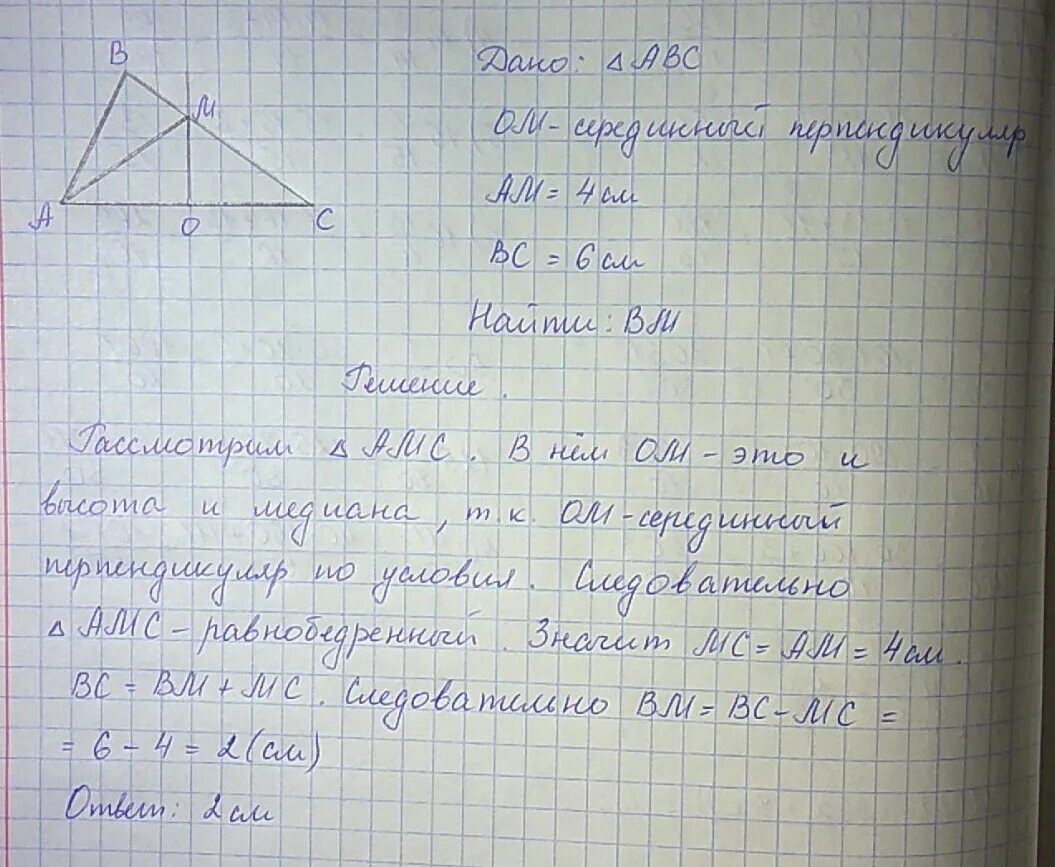 B
M
A
O
C
Дано: △ABC
OM-серединный перпендикуляр
AM = 4 см
BC = 6 см
Найти: BM
Решение.
Рассмотрим △ AMC. В нём OM - это и
высота и медиана, т.к. OM-серединный
перпендикуляр по условия. Следовательно
△ AMC - равнобедренный. Значит MC = AM = 4 см.
BC = BM + MC. Следовательно BM = BC - MC =
= 6 - 4 = 2 (см)
Ответ: 2 см